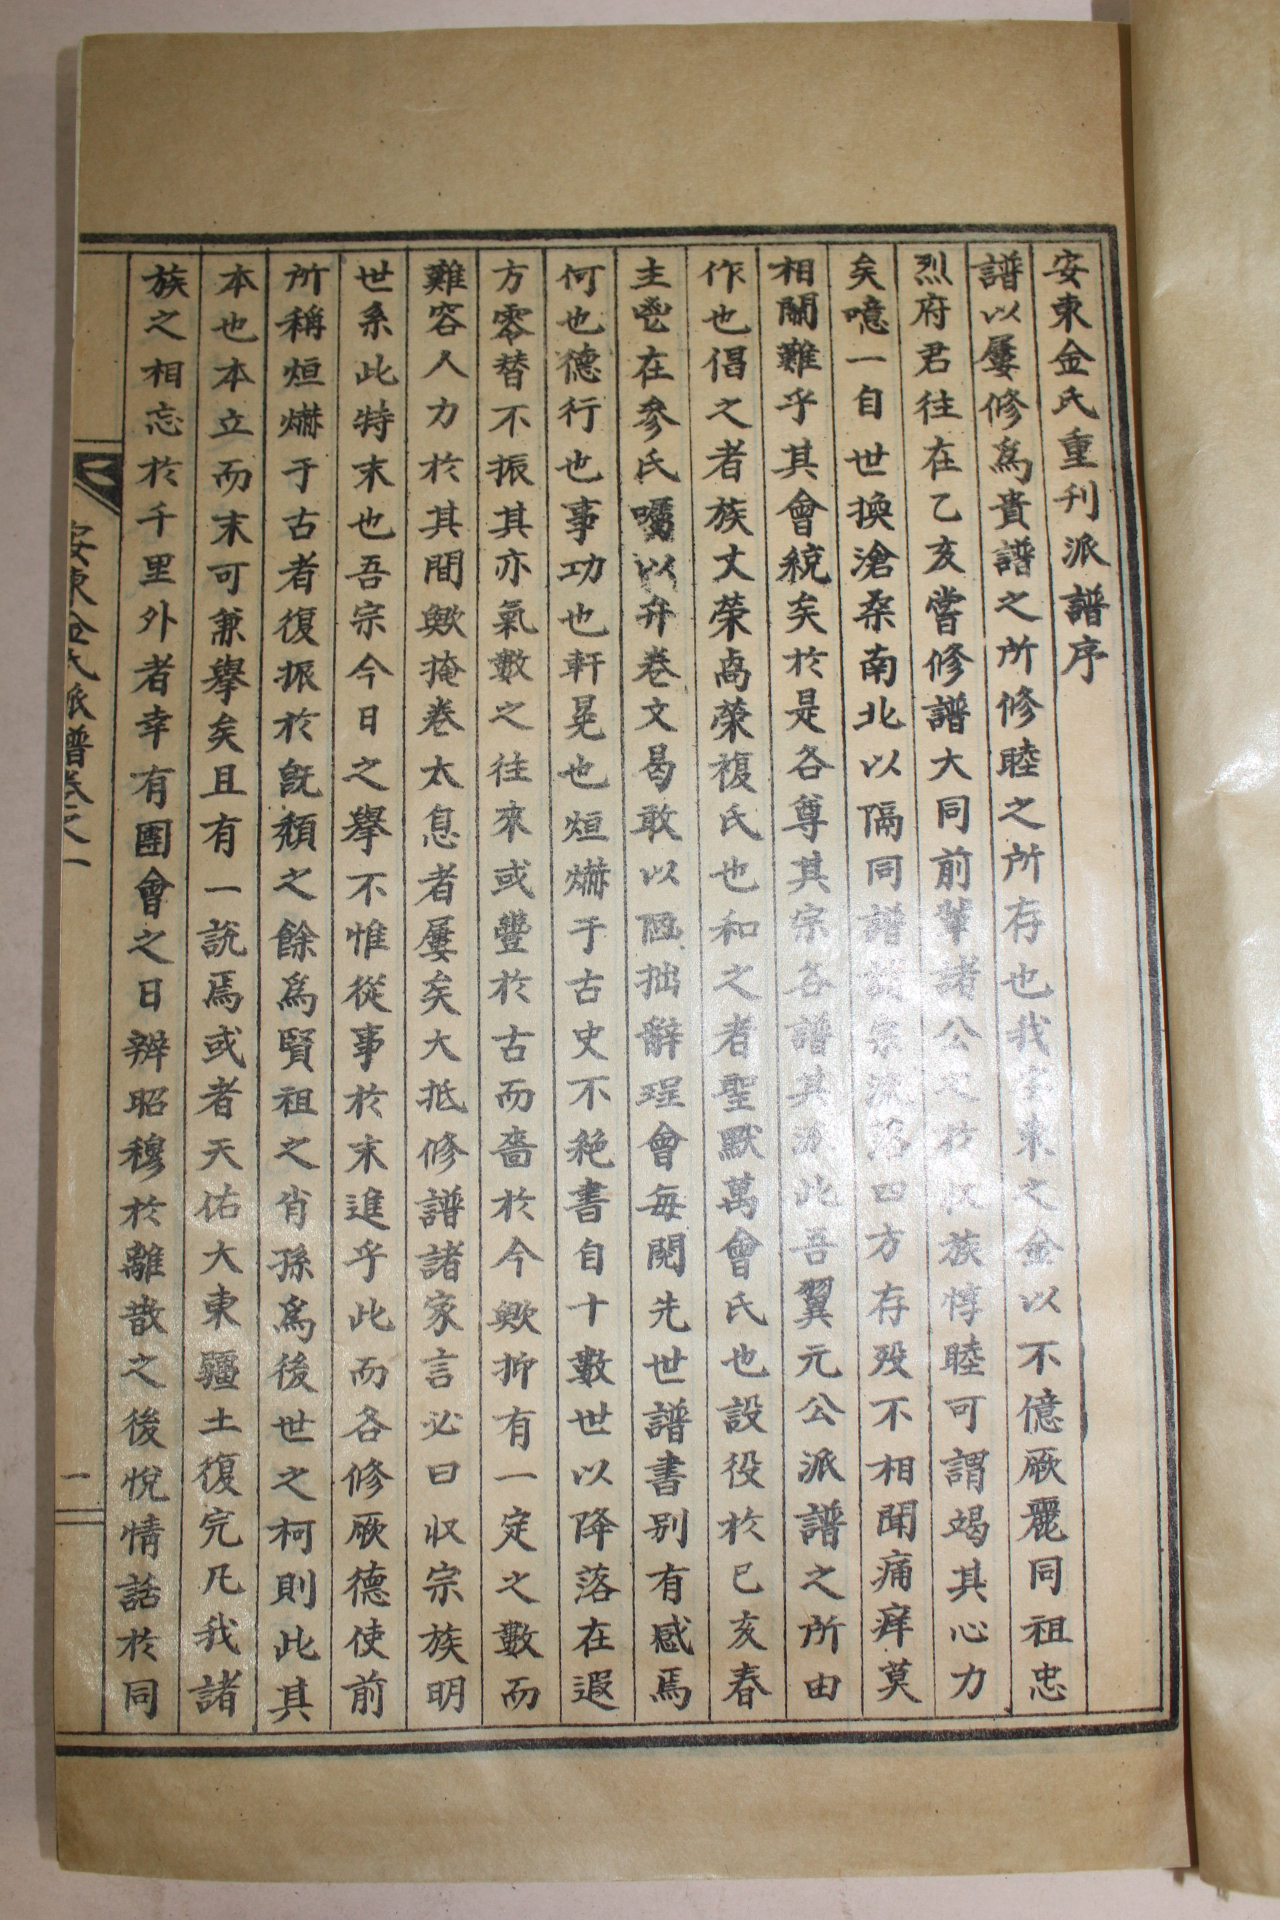 安東金氏重刊派譜序
譜以屢修爲貴譜之所修睦之所存也我安東之金以不億厥麗同祖忠
烈府君往在乙亥嘗修譜大同前輩諸公之於收族惇睦可謂竭其心力
矣噫一自世換滄桑南北以隔同譜諸宗流落四方存歿不相聞痛痒莫
相關難乎其會統矣於是各尊其宗各譜其派此吾翼元公派譜之所由
作也倡之者族丈榮卨榮複氏也和之者聖默萬會氏也設役於己亥春
主鬯在參氏囑以弁卷文曷敢以陋拙辭珵會每閱先世譜書別有感焉
何也德行也事功也軒冕也烜爀于古史不絶書自十數世以降落在遐
方零替不振其亦氣數之往來或豐於古而嗇於今歟抑有一定之數而
難容人力於其間歟掩卷太息者屢矣大抵修譜諸家言必曰收宗族明
世系此特末也吾宗今日之擧不惟從事於末進乎此而各修厥德使前
所稱烜爀于古者復振於旣頹之餘爲賢祖之肖孫爲後世之柯則此其
本也本立而末可兼擧矣且有一說焉或者天佑大東疆土復完凡我諸
族之相忘於千里外者幸有團會之日辨昭穆於離散之後悅情話於同
安東金氏派譜卷之一
一